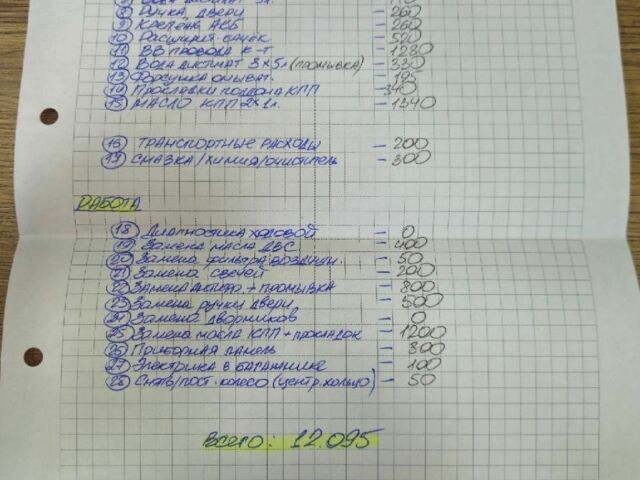 8 Ручка, двери - 260
9 Крепеж АКБ - 260
10 Расширит. бачек - 520
11 ВВ провода к-т - 1230
12 Вода дистилат 3 x 5л (промывка) - 330
13 Форсунка омыват. - 195
14 Прокладки поддона КПП - 340
15 Масло КПП 2x1л. - 1340
16 Транспортные расходы - 200
17 Смазка/химия/очиститель - 300
Работа
18 Диагностика ходовой - 0
19 Замена масла ДВС - 400
20 Замена фильтра воздушн. - 50
21 Замена свечей - 200
22 Замена антифр. + промывка - 800
23 Замена ручки двери - 500
24 Замена дворников - 0
25 Замена масла КПП + прокладок - 1200
26 Приборная панель - 300
27 Электрика в багажнике - 100
28 Снять/пост. колесо (центр. кольцо) - 50
Всего: 12.095